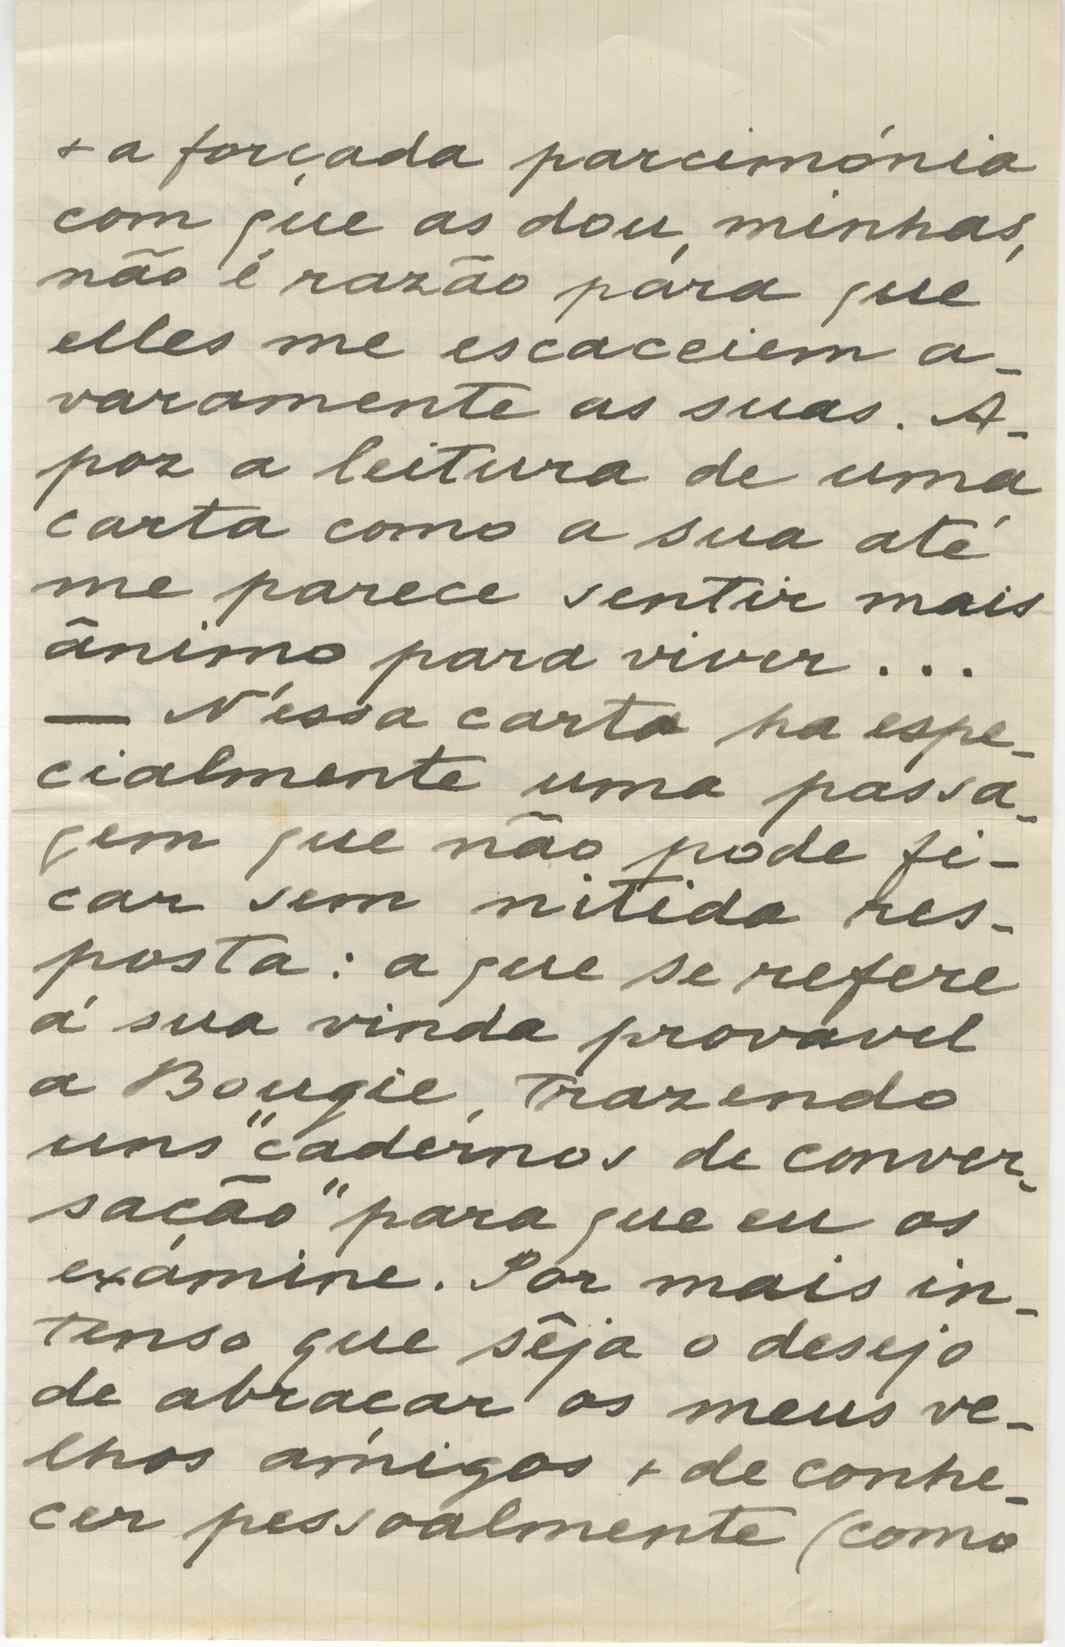 + a forçada parcimónia
com que as dou, minhas,
não é razão para que
elles me escaceiem a-
varamente as suas. A-
poz a leitura de uma
carta como a sua até
me parece sentir mais
ânimo para viver...
— N'essa carta ha espe-
cialmente uma passa-
gem que não póde fi-
car sem nitida res-
posta: a que se refere
á sua vinda provavel
a Bougie, trazendo
uns "cadernos de conver-
sação" para que eu os
examine. Por mais in-
tenso que sêja o desejo
de abraçar os meus ve-
lhos amigos + de conhe-
cer pessoalmente (como